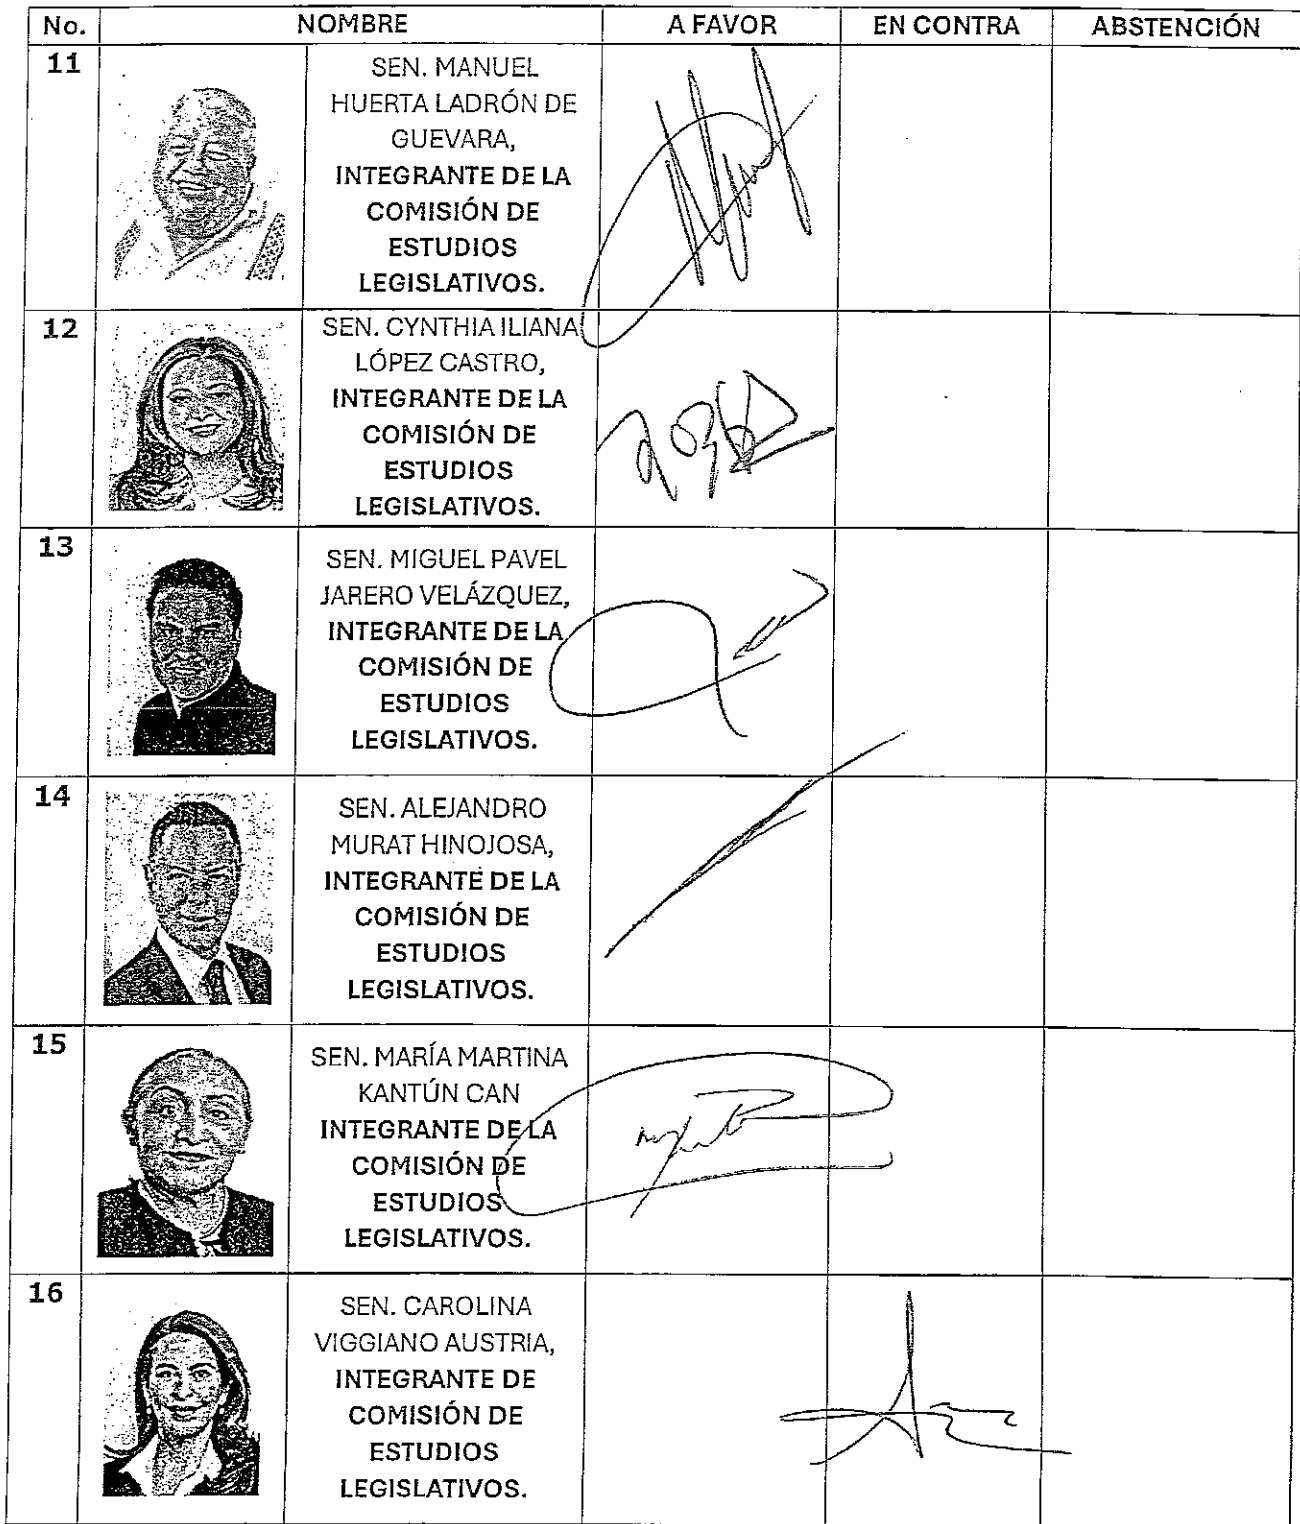 No. NOMBRE A FAVOR EN CONTRA ABSTENCIÓN
11
SEN. MANUEL
HUERTA LADRÓN DE
GUEVARA,
INTEGRANTE DE LA
COMISIÓN DE
ESTUDIOS
LEGISLATIVOS.
12
SEN. CYNTHIA ILIANA
LÓPEZ CASTRO,
INTEGRANTE DE LA
COMISIÓN DE
ESTUDIOS
LEGISLATIVOS.
13
SEN. MIGUEL PAVEL
JARERO VELÁZQUEZ,
INTEGRANTE DE LA
COMISIÓN DE
ESTUDIOS
LEGISLATIVOS.
14
SEN. ALEJANDRO
MURAT HINOJOSA,
INTEGRANTE DE LA
COMISIÓN DE
ESTUDIOS
LEGISLATIVOS.
15
SEN. MARÍA MARTINA
KANTÚN CAN
INTEGRANTE DE LA
COMISIÓN DE
ESTUDIOS
LEGISLATIVOS.
16
SEN. CAROLINA
VIGGIANO AUSTRIA,
INTEGRANTE DE
COMISIÓN DE
ESTUDIOS
LEGISLATIVOS.